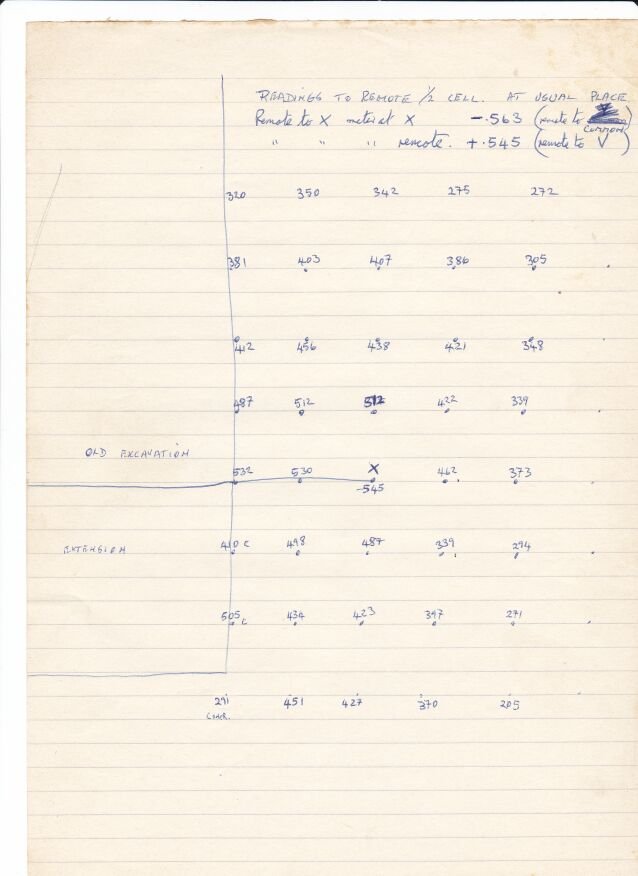 READINGS TO REMOTE 1/2 CELL. AT USUAL PLACE
Remote to X meter at X -.563 (remote to COMMON)
" " " remote. +.545 (remote to V)
320 350 342 275 272
381 403 407 386 305
412 456 438 421 348
487 512 512 422 339
OLD EXCAVATION
532 530 X 462 373
-545
EXTENSION
410 C 498 487 339 294
505 C 434 423 397 271
291 451 427 370 205